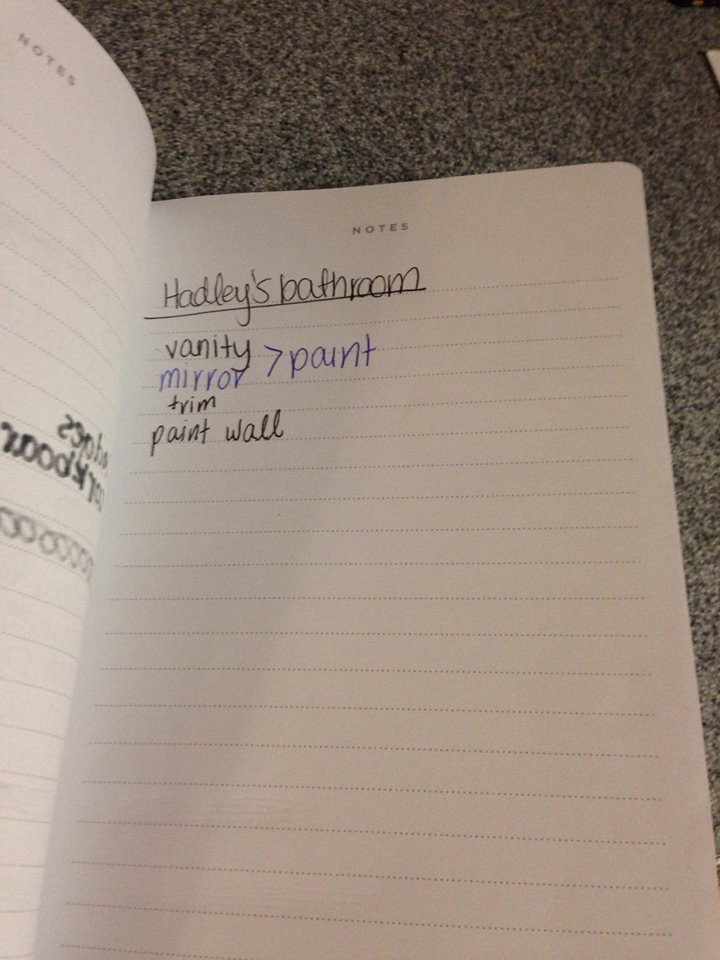 NOTES
NOTES
Hadley's bathroom
vanity
mirror > paint
trim
paint wall